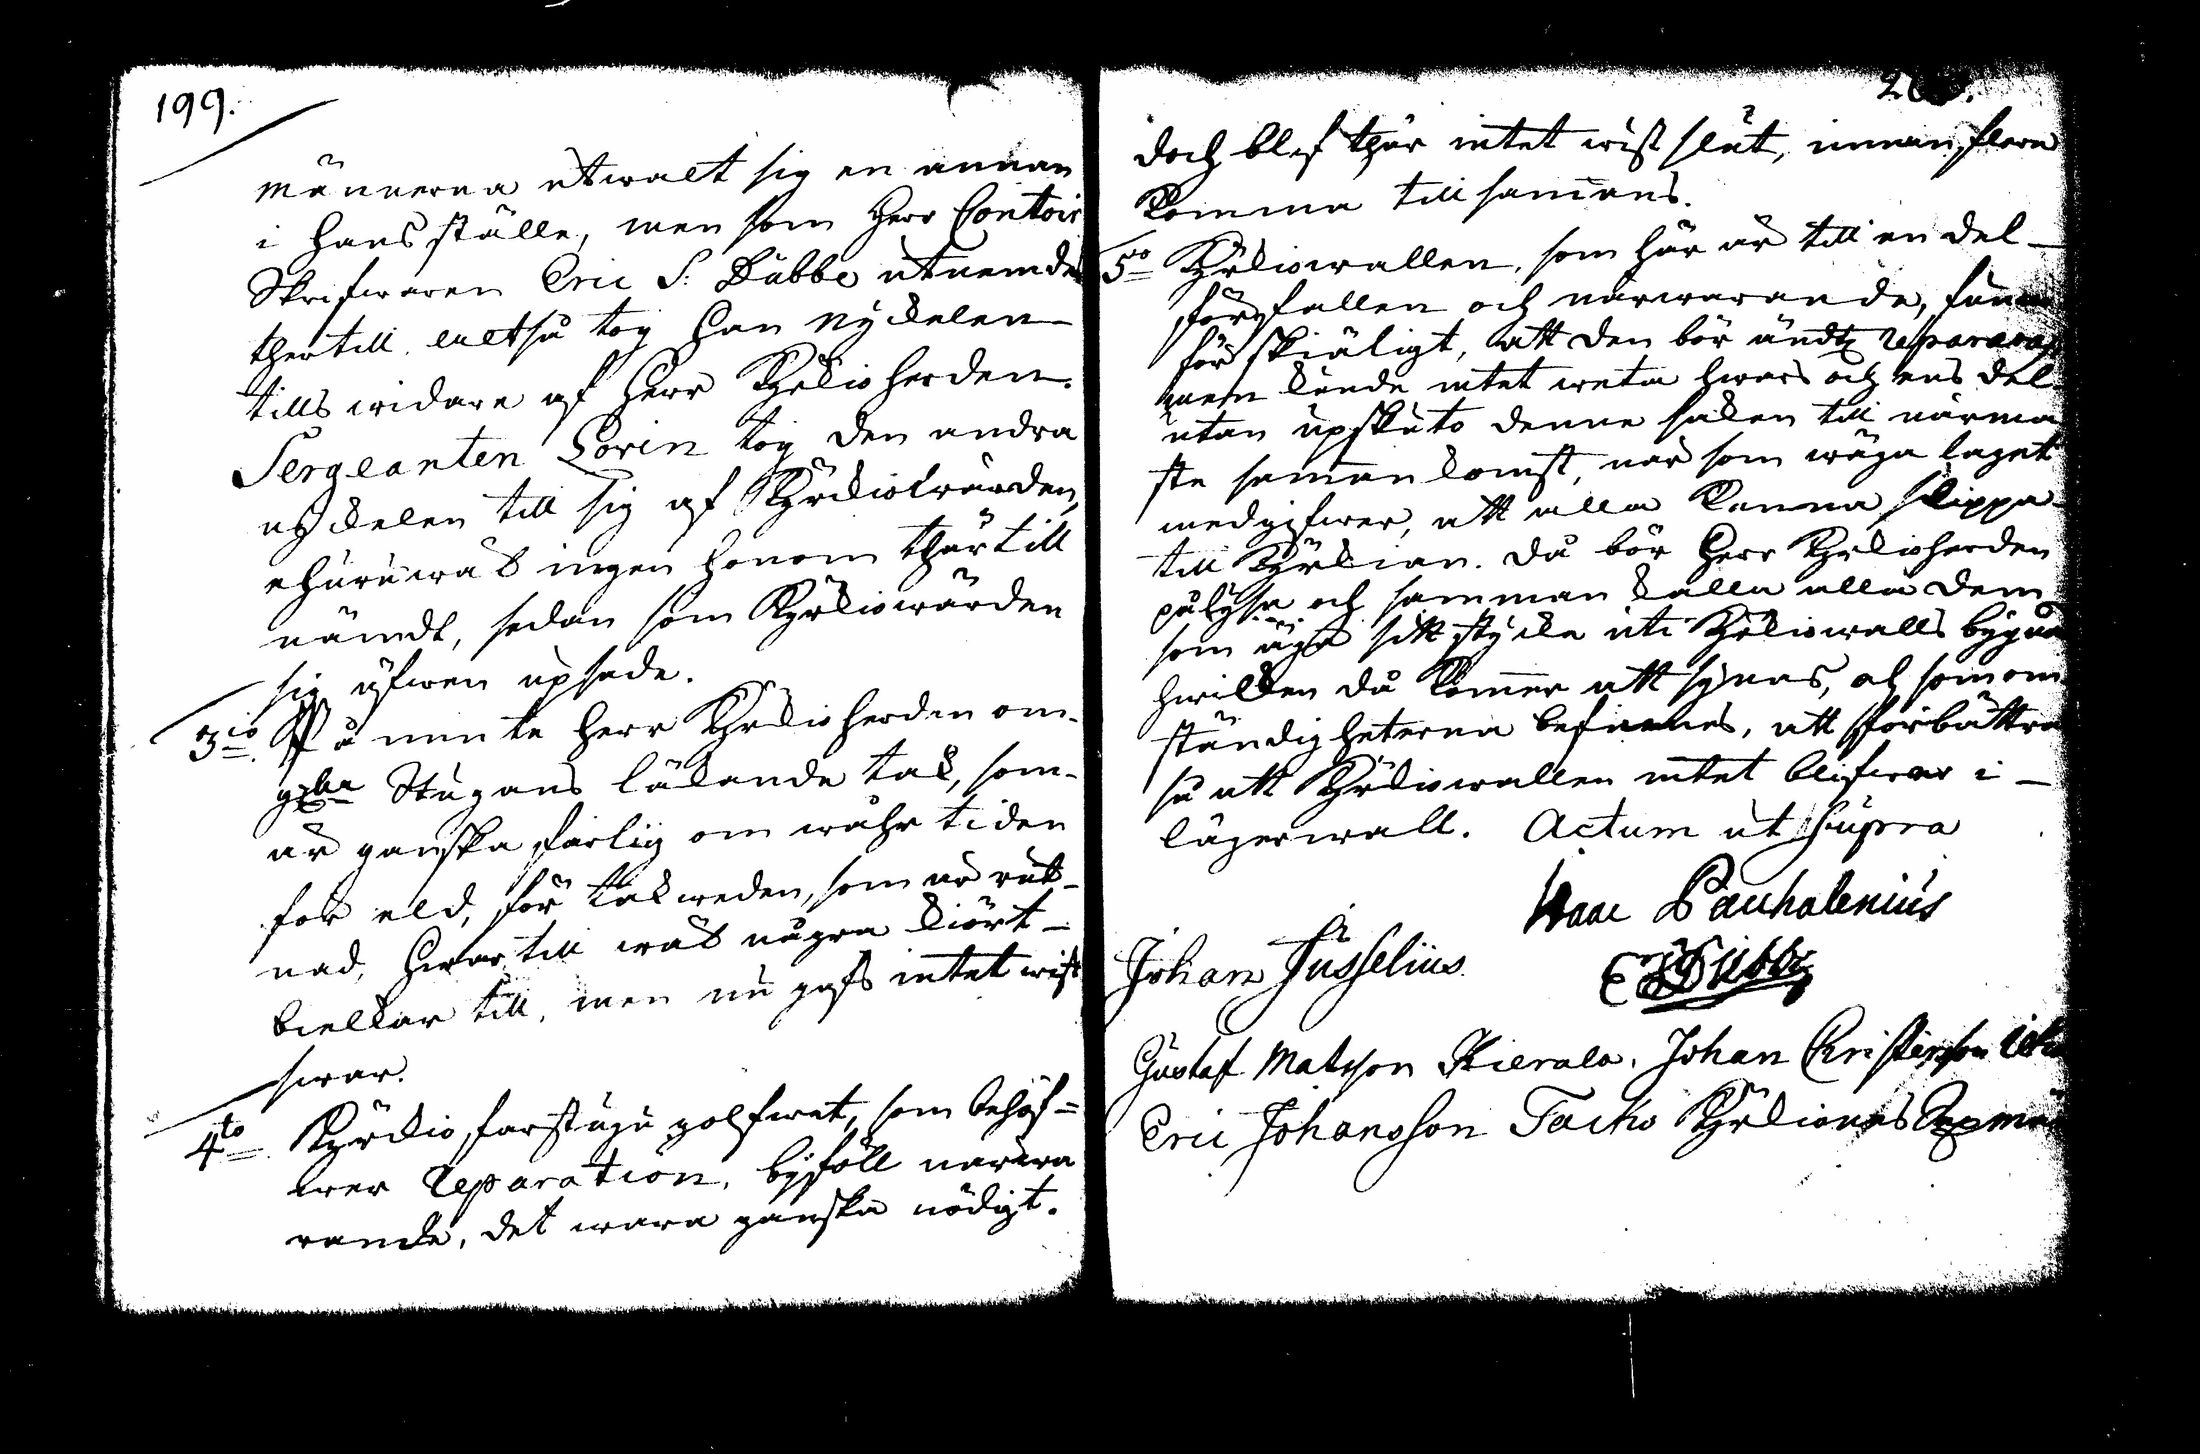 199.
männerna utwalt sig en annan
i hans ställe, men som Herr Contoir
Skrifwaren Eric S: Dübbe utnemdes
ther till, altså tog han nyckelen
tills widare af Herr Kyrckioherden.
Sergeanten Lorin tog den andra
nyckelen till sig af Kyrckiowärden,
ehuruwäl ingen honom thär till
nämdt, sedan som Kyrckiowärden
sig äfwen upsade.
3io På minte Herr Kyrckioherden om
Stugans läkande tak, som
är ganska farlig om wåhr tiden
för eld, för takweden, som är rut-
nad, hwar till wäl några kiört
bielkar till, men nu gafs intet wist
swar.
4to Kyrckio farstugu golfwet, som behöf=
wer reparation, byföll närwa
rande, det wara ganska nödigt.
doch blef thär intet wist slut, innan flera
komma till samans.
5to Kyrckiowallen, som här är till en del
förfallen och närwarande, funno
för skiäligt, att den bör ändtl repareras
men kunde intet weta hwars och ens del
utan upskuto denne saken till närma
ste sammankomst, när som wäga laget
medgifwer, att alla kunna slippa
till Kyrckian. Då bör Herr Kyrckioherden
pålysa och samman kalla alla dem
som äga sitt stycke uti Kyrckiowalls bygna
hwilcken då kommer att synas, och som om
ständigheterna befinnes, att förbättra
så att Kyrckiowallen intet blifwer i
lägerwall. Actum ut supra
Isaac Pauhalenius
Johan Fusselius
E Dübbe
Gustaf Matsson Kierala. Johan Christersson
Eric Johansson Tacko Kyrckiones Sexmän